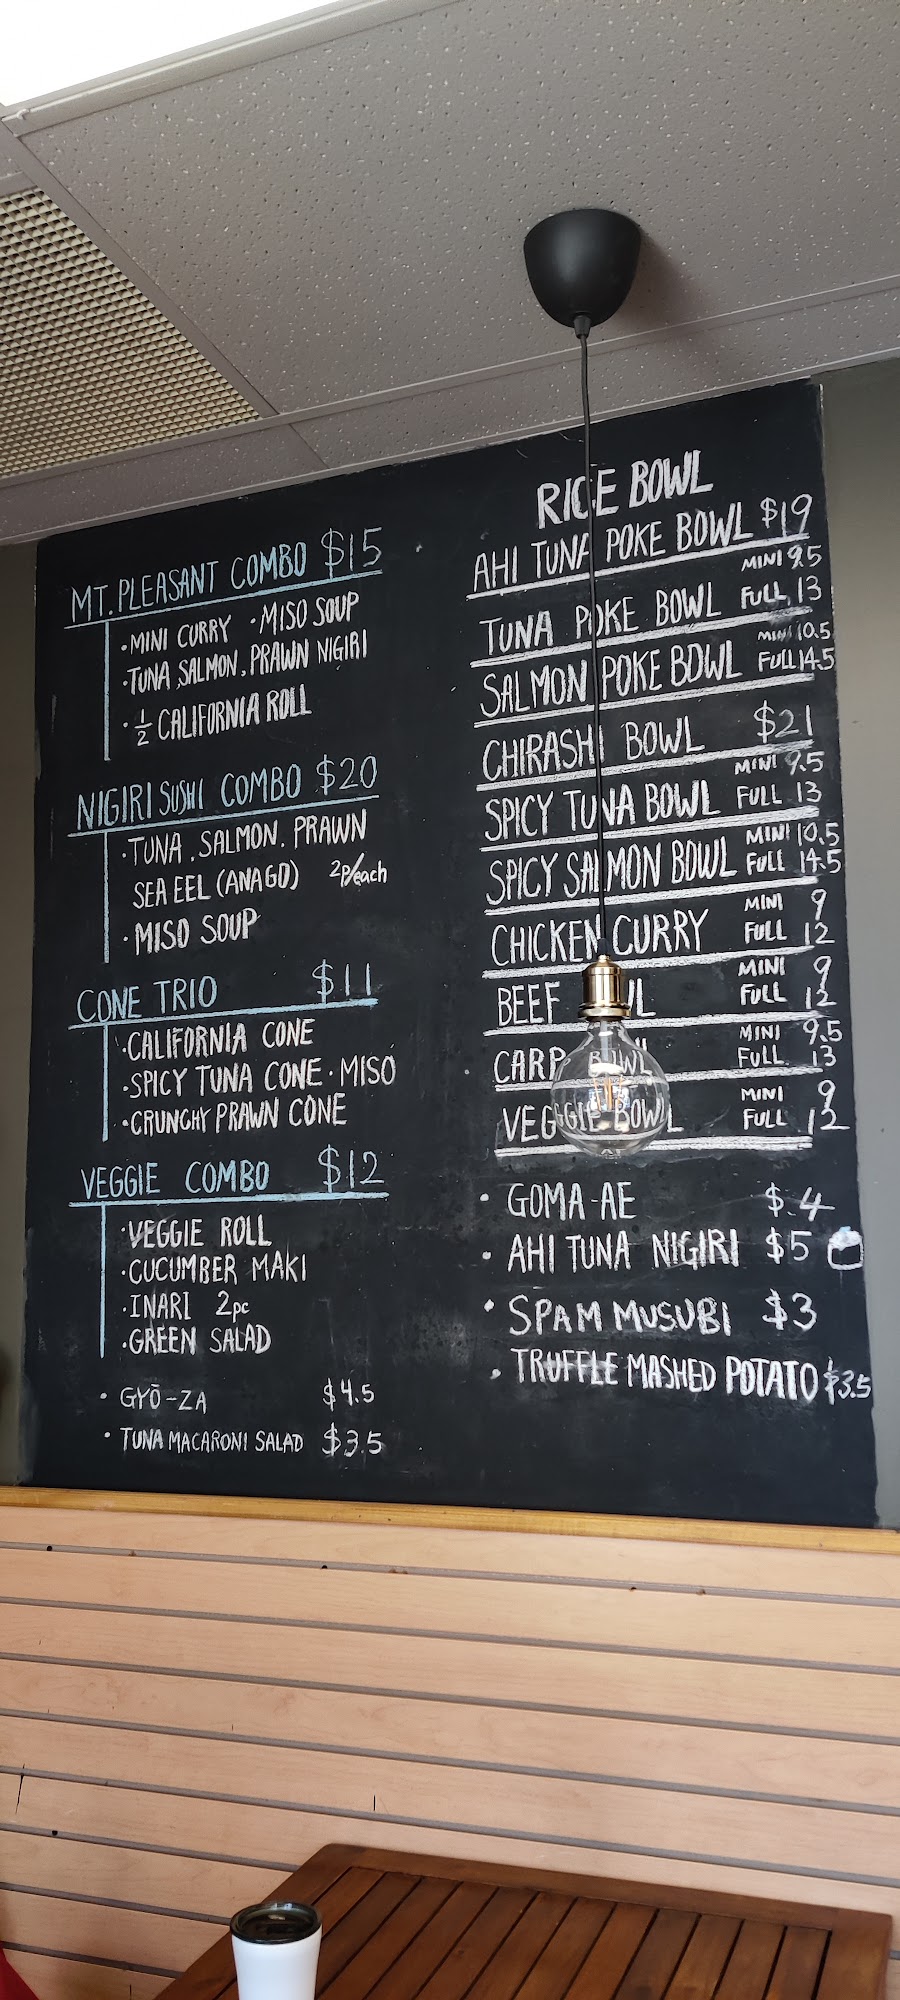 MT. PLEASANT COMBO $15
· MINI CURRY · MISO SOUP
· TUNA, SALMON, PRAWN NIGIRI
· 1/2 CALIFORNIA ROLL
NIGIRI SUSHI COMBO $20
· TUNA, SALMON, PRAWN
SEA EEL (ANAGO) 2P/each
· MISO SOUP
CONE TRIO $11
· CALIFORNIA CONE
· SPICY TUNA CONE · MISO
· CRUNCHY PRAWN CONE
VEGGIE COMBO $12
· VEGGIE ROLL
· CUCUMBER MAKI
· INARI 2pc
· GREEN SALAD
· GYŌ-ZA $4.5
· TUNA MACARONI SALAD $3.5
RICE BOWL
AHI TUNA POKE BOWL $19
MINI 9.5
TUNA POKE BOWL FULL 13
MINI 10.5
SALMON POKE BOWL FULL 14.5
CHIRASHI BOWL $21
MINI 9.5
SPICY TUNA BOWL FULL 13
MINI 10.5
SPICY SALMON BOWL FULL 14.5
MINI 9
CHICKEN CURRY FULL 12
MINI 9
BEEF FULL 12
MINI 9.5
BOWL FULL 13
MINI 9
VEGGIE BOWL FULL 12
· GOMA-AE $4
· AHI TUNA NIGIRI $5
· SPAM MUSUBI $3
· TRUFFLE MASHED POTATO $3.5